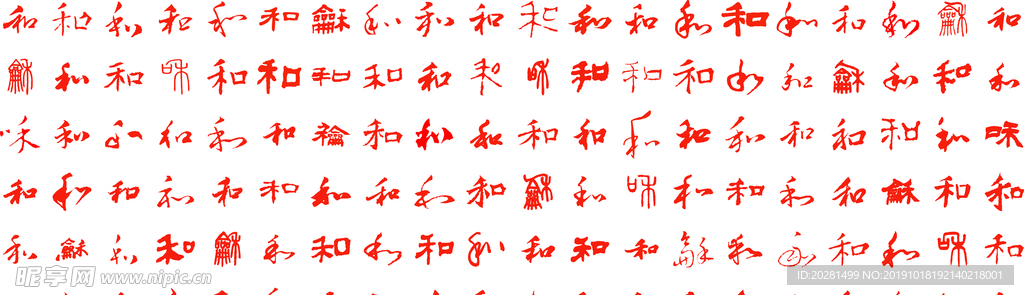 和和和和和和龢和和和和和和和和和和和龢和
龢和和咊和和和和和和咊和和和和和龢和和和
咊和和和和和龢和和和和和和和和和和和和咊
和和和和和和和和和和龢和咊和和和和龢和和
和龢和和龢和和和和和和和和龢和和和和咊和
昵享网 www.nipic.cn
ID:20281499 NO:20191018192140218001